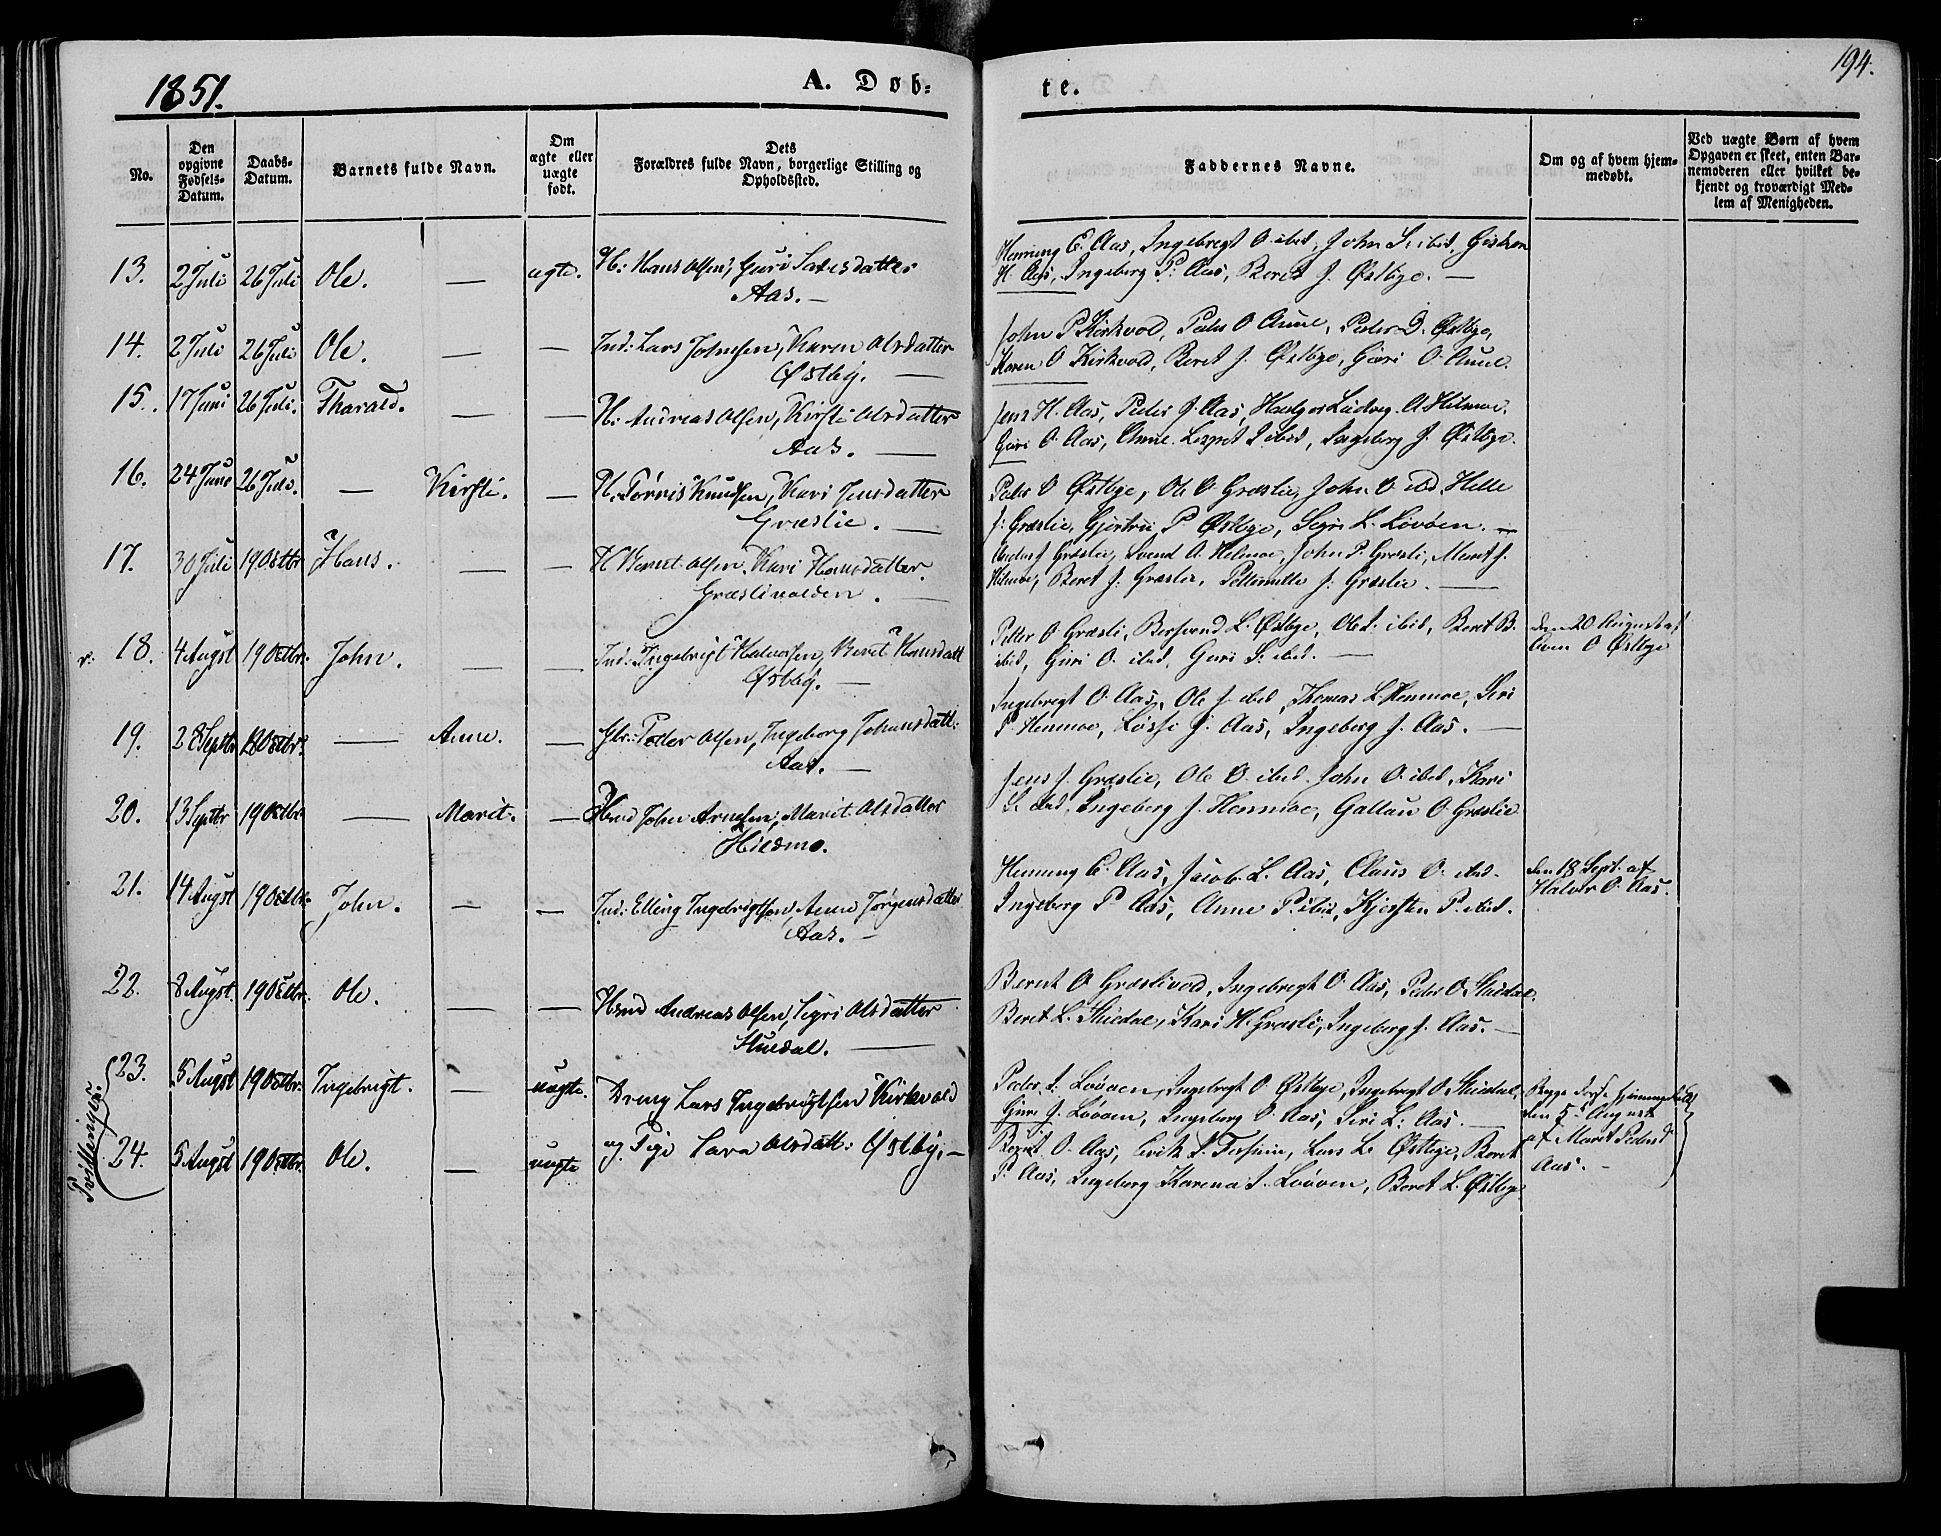 1851.
A. Døb=
te.
194.
No.
Den opgivne Fødsels-Datum.
Daabs-Datum.
Barnets fulde Navn.
Om ægte eller uægte født.
Dets Forældres fulde Navn, borgerlige Stilling og Opholdssted.
Faddernes Navne.
Om og af hvem hjem-medøbt.
Ved uægte Børn af hvem Opgaven er skeet, enten Bar-nemoderen eller hvilket be-kjendt og troværdigt Med-lem af Menigheden.
13. 2 Juli 26 Juli Ole. — ægte. H: Hans Olsen, Guri Larsdatter
Aas. —
Henning E. Aas, Ingebregt O. ibid, John ibid,
H. Aas, Ingeborg P. Aas, Beret J. Østbye. —
14. 2 Juli 26 Juli Ole. — — Ind: Lars Johnsen, Karen Olsdatter
Østby. —
John P Kirkvold, Peder O Aune, Peder D. Østbye,
Karen O Kirkvold, Beret J. Østbye, Guri O. Aune.
15. 17 Juni 26 Juli. Tharald. — — H: Andreas Olsen, Kirsti Olsdatter
Aas. —
Jens H. Aas, Peder J. Aas, Ludvig A Hilmoe,
Guri O. Aas, Anne ibid, Ingeborg J. Østbye.
16. 24 Juni 26 Juli. — Kirsti. — H. Tørris Knudsen, Kari Jensdatter
Græslie. —
Peder O Østbye, Ole O Græslie, John O. ibid, Helle
J: Græslie, Gjertru P Østbye, Segri L. Løvøen. —
17. 30 Juli 19 Octbr. Hans. — — H Bernt Olsen, Kari Hansdatter
Græslivolden. —
Græslie, Svend A. Hilmoe, John P. Græsli, Meret J.
Hilmoe, Beret J: Græslie, Pettronille J: Græslie. —
18. 4 Augst 19 Octbr. John. — — Ind: Ingebrigt Halvorsen, Beret Hansdatt
Østby. —
Petter O Græsli, Bersvend L. Østbye, Ole ibid, Beret B.
ibid, Guri O. ibid, Guri S. ibid. —
den 20 August af
Even O Østbye
19. 28 Septbr 19 Octbr. — Anne. — Peder Olsen, Ingeborg Johnsdatt:
Aas. —
Ingebregt O. Aas, Ole J ibid, Thomas L Henmoe, Siri
P Henmoe, J: Aas, Ingeborg J. Aas. —
20. 13 Septbr 19 Octbr. — Marit. — Hmd John Arnesen, Marit Olsdatter
Hildmo.
Jens J. Græslie, Ole O. ibid, John O. ibid, Kari
ibid, Ingeborg J. Henmoe, O Græslie
21. 14 Augst 19 Octbr. John. — — Ind: Elling Ingebrigtsen, Anne Jørgensdatter
Aas. —
Henning E. Aas, Jacob L. Aas, Claus O. ibid.
Ingeborg P Aas, Anne P. ibid, Kjersten P. ibid.
den 18 Sept. af
Halvor O. Aas.
22. 8 Augst 19 Octbr. Ole. — — Hmd Andreas Olsen, Segri Olsdatter
Stuedal. —
Bernt O Græslivold, Ingebregt O. Aas, Peder O Stuedal,
Beret L. Stuedal, Kari H. Græsli, Ingeborg J. Aas. —
Tvillinger.
23. 5 Augst 19 Octbr. Ingebrigt. — uægte. Dreng Lars Ingebrigtsen Kirkvold
Peder Løvøen, Ingebregt O Østbye, Ingebregt O Stuedal,
Guri J. Løvøen, Ingeborg O Aas, Siri L. Aas. —
24. 5 Augst 19 Octbr. Ole. — uægte og Pige Sara Olsdatt: Østby. —
Bernt O. Aas, Erik Lars L. Østbye, Beret
P. Aas, Ingeborg Karena Løvøen, Beret L. Østbye
Begge hjemmedøbt
den 5 August
af Marit Pedersd
Aas. —